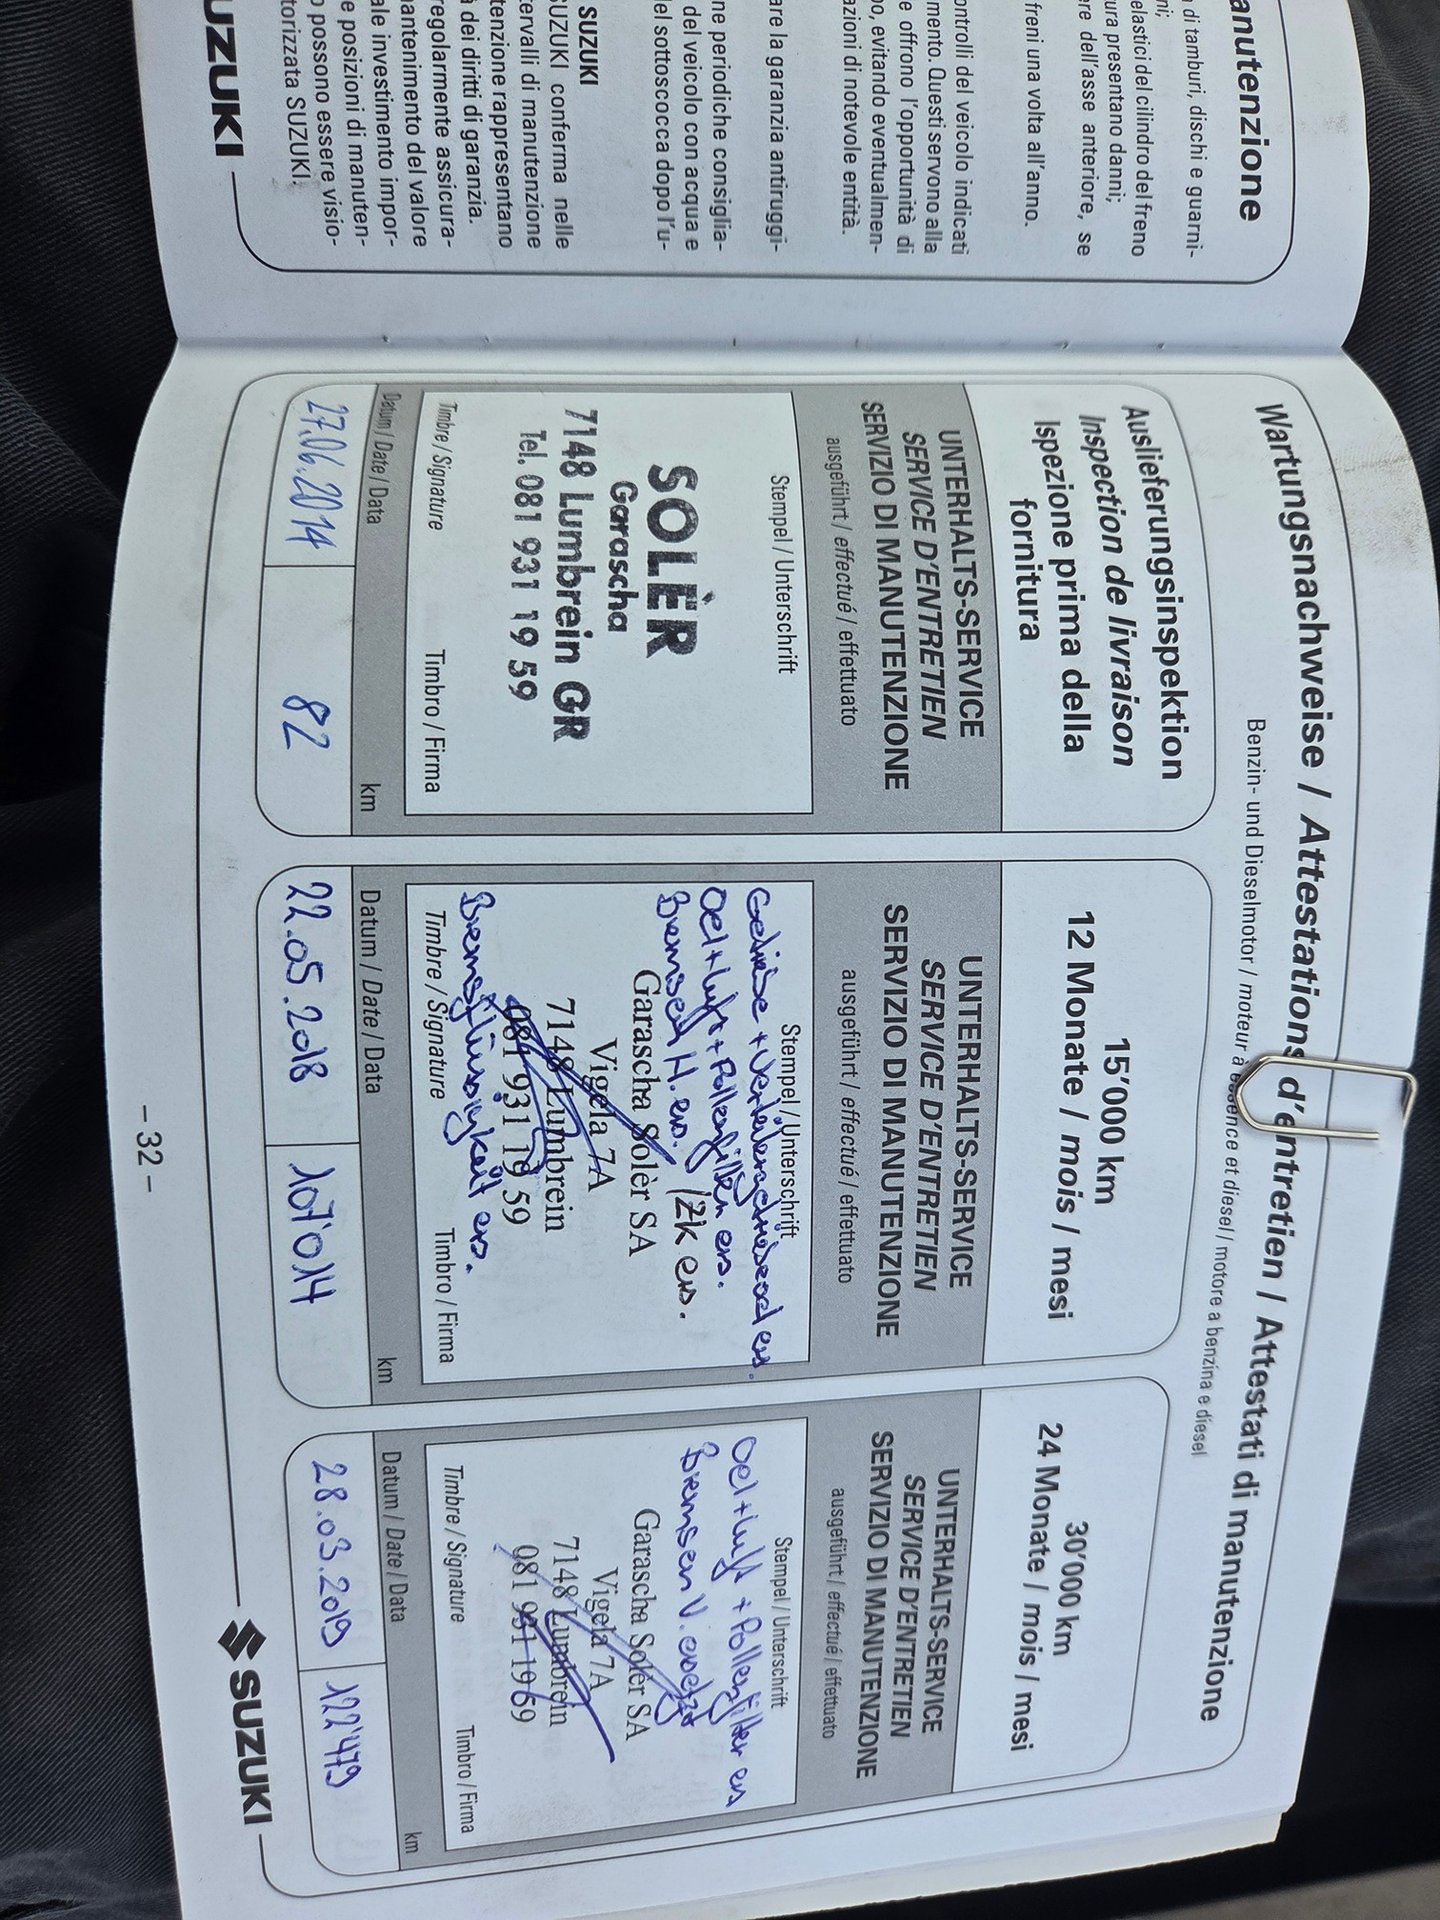 anutenzione
di tamburi, dischi e guarni-
ni;
elastici del cilindro del freno
ura presentano danni;
ere dell'asse anteriore, se
freni una volta all'anno.
ontrolli del veicolo indicati
mento. Questi servono alla
e offrono l'opportunità di
po, evitando eventualmen-
azioni di notevole entità.
are la garanzia antiruggi-
ne periodiche consiglia-
del veicolo con acqua e
el sottoscocca dopo l'u-
SUZUKI
SUZUKI conferma nelle
tervalli di manutenzione
tenzione rappresentano
à dei diritti di garanzia.
regolarmente assicura-
mantenimento del valore
ale investimento impor-
e posizioni di manuten-
o possono essere visio-
torizzata SUZUKI.
UZUKI
Wartungsnachweise / Attestations d'entretien / Attestati di manutenzione
Benzin- und Dieselmotor / moteur à essence et diesel / motore a benzina e diesel
Auslieferungsinspektion
Inspection de livraison
Ispezione prima della
fornitura
UNTERHALTS-SERVICE
SERVICE D'ENTRETIEN
SERVIZIO DI MANUTENZIONE
ausgeführt / effectué / effettuato
Stempel / Unterschrift
SOLÈR
Garascha
7148 Lumbrein GR
Tel. 081 931 19 59
Timbre / Signature Timbro / Firma
Datum / Date / Data km
27.06.2014 82
15'000 km
12 Monate / mois / mesi
UNTERHALTS-SERVICE
SERVICE D'ENTRETIEN
SERVIZIO DI MANUTENZIONE
ausgeführt / effectué / effettuato
Stempel / Unterschrift
Getriebe + Verteilergetriebeoel ers.
Oel + Luft + Pollenfilter ers.
Bremsen H. ers. / ZK ers.
Garascha Solèr SA
Vigela 7A
7148 Lumbrein
081 931 19 59
Bremsflüssigkeit ers.
Timbre / Signature Timbro / Firma
Datum / Date / Data km
22.05.2018 107'014
30'000 km
24 Monate / mois / mesi
UNTERHALTS-SERVICE
SERVICE D'ENTRETIEN
SERVIZIO DI MANUTENZIONE
ausgeführt / effectué / effettuato
Stempel / Unterschrift
Oel + Luft + Pollenfilter ers
Bremsen V. ersetzt
Garascha Solèr SA
Vigela 7A
7148 Lumbrein
081 931 19 59
Timbre / Signature Timbro / Firma
Datum / Date / Data km
28.03.2019 122'479
– 32 –
SUZUKI